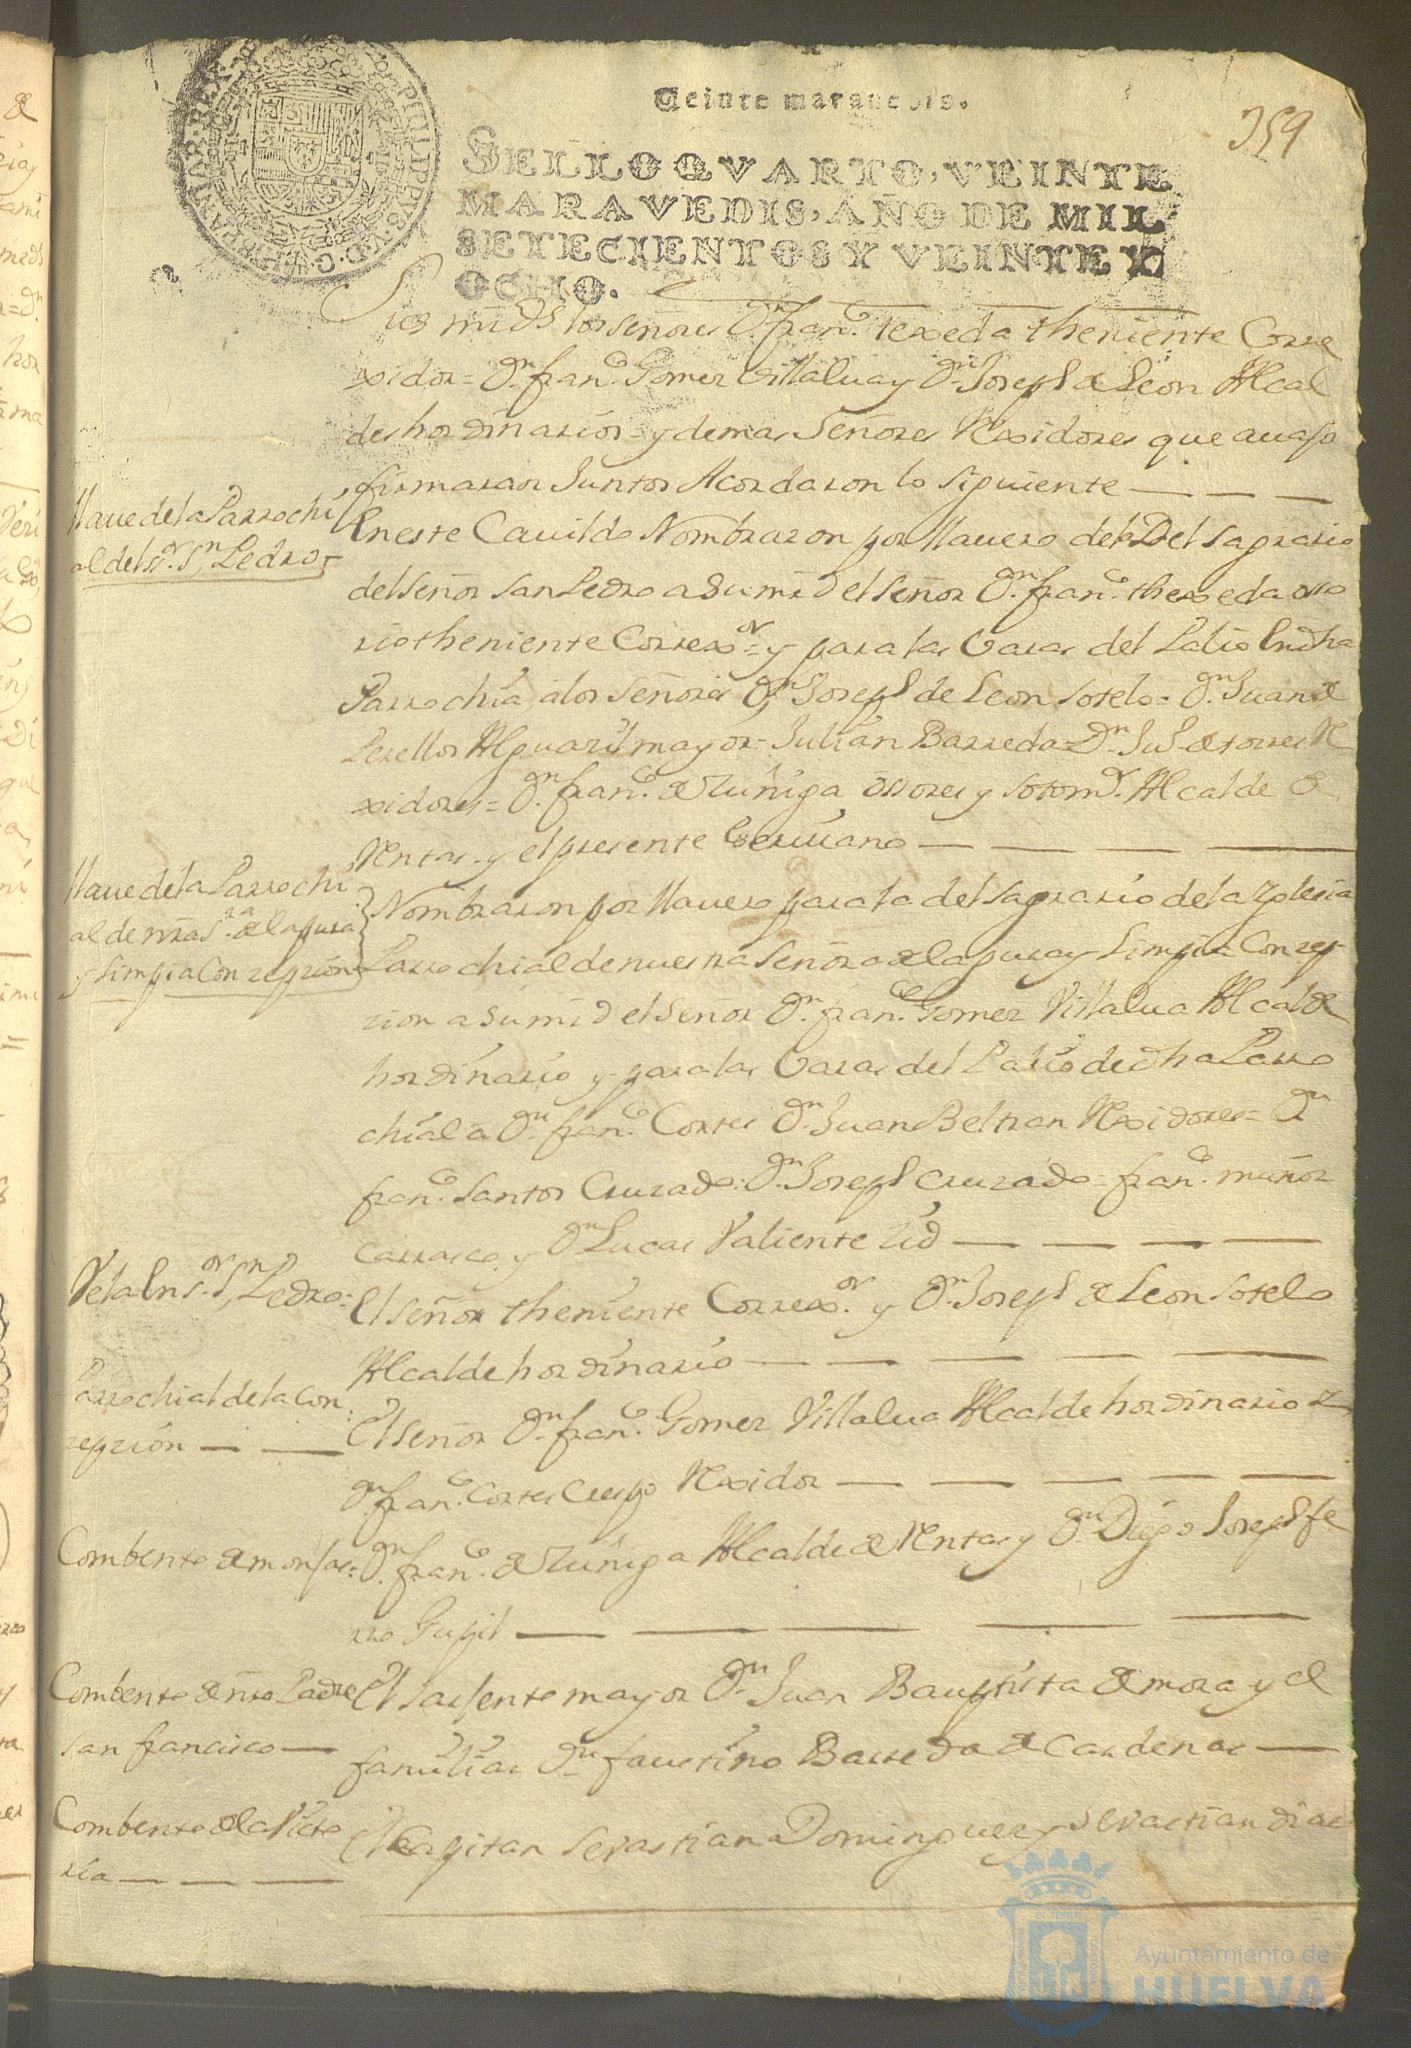 Veinte maravedis.
359
SELLO QVARTO, VEINTE
MARAVEDIS, AÑO DE MIL
SETECIENTOS Y VEINTE Y
OCHO.
los señores Dn. franco. texeda theniente Corre
xidor = Dn. franco. Gomez Villalua y Dn. Joseph de Leon Alcal
des hordinarios y demas Señores Rexidores que auajo
firmaran Juntos Acordaron lo siguiente
llaue de la Parrochi
al del sr. Sn. Pedro
En este Cauildo Nombraron por llauero del Sagrario
del señor san Pedro a su md el señor Dn. franco. thexeda
rio theniente Correxor. = y para las Varas del Palio En dha
Parrochia, a los señores Dn. Joseph de Leon sotelo = Dn. Juan de
Perellos Alguazil mayor = Julian Barreda = Dn. de torres Re
xidores = Dn. franco. de Zuñiga Ossores y sotomr. Alcalde de
Rentas y el presente Escriuano
llaue de la Parrochi
al de nra sra. de la pura
y limpia Conzepzion
Nombraron por llauero para la del sagrario de la Yglesia
Parrochial de nuestra Señora de la pura y Limpia Conzep
zion a su md el señor Dn. franco. Gomez Villalua Alcalde
hordinario y para las Varas del Palio de dha Parro
chial a Dn. franco. Cortes Dn. Juan Beltran Rexidores = Dn
franco. santos Cruzado: Dn. Joseph Cruzado = franco. muñoz
carrasco, y Dn Lucas Valiente Zid
Vela En sor. Sn. Pedro =
El señor theniente Correxor. y Dn. Joseph de Leon sotelo
Alcalde hordinario
Parrochial de la Con
zepzion
El señor Dn. franco. Gomez Villalua Alcalde hordinario y
Dn. franco. Cortes Crespo Rexidor
Combento de
Dn. franco. de Zuñiga Alcalde de Rentas y Dn. Diego Joseph fe
rro
Combento de nro Padre
san francisco
El sarjento mayor Dn. Juan Bauptista de mora y el
familiar Dn. faustino Barreda de Cardenas
Combento de la Victo
ria
El Capitan Sevastian Dominguez y sevastian dias
Ayuntamiento de
HUELVA